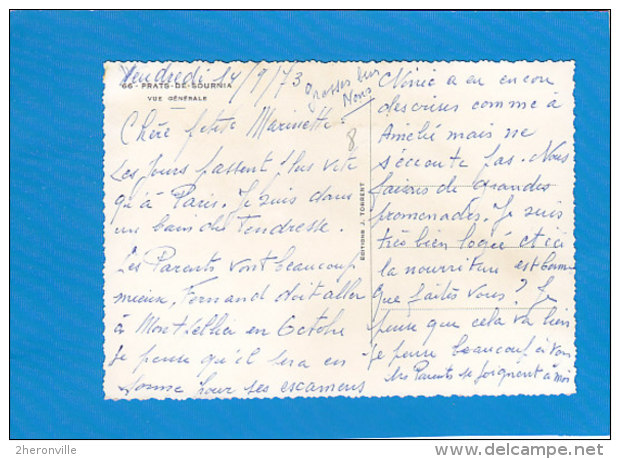 Vendredi 14/9/73
66 - PRATS-DE-SOURNIA
VUE GÉNÉRALE
Chère petite Marinette.
Les jours passent plus vite
qu'à Paris. Je suis dans
un bain de Tendresse.
Les Parents vont beaucoup
mieux, Fernand doit aller
à Montpellier en Octobre
Je pense qu'il sera en
forme pour ses examens
8
EDITIONS J. TORRENT
Ninie a eu encore
des crises comme à
mais ne
s'écoute pas. Nous
faisons de grandes
promenades. Je suis
très bien logée et ici
la nourriture est bonne
Que faites vous? Je
pense que cela va bien
Je pense beaucoup à vous
les Parents se joignent à moi
grosses bises
Nous
2heronville
delcampe.net